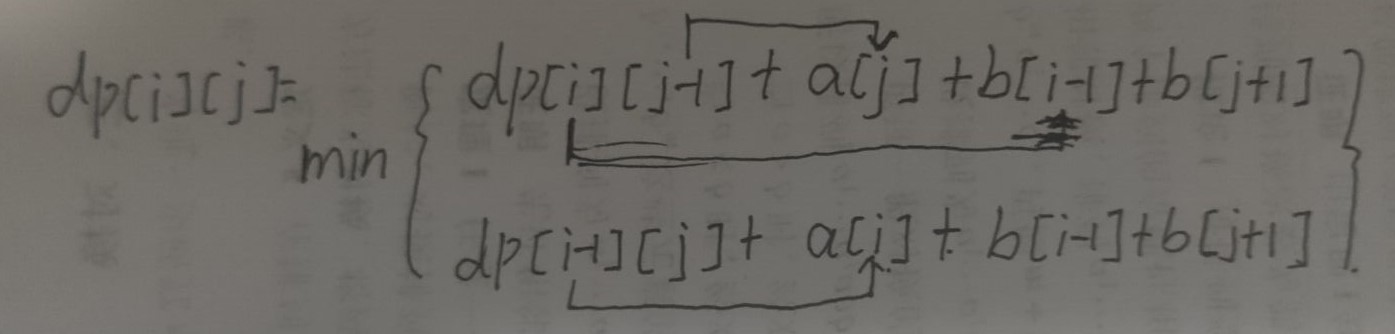 dp[i][j]=
min
{ dp[i][j-1]+ a[j] +b[i-1]+b[j+1]
dp[i-1][j]+ a[i]+ b[i-1]+b[j+1] }.